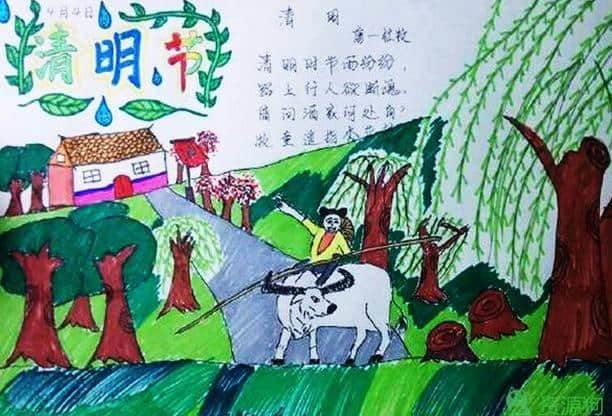 4月4日
清明节
清明
唐一杜牧
清明时节雨纷纷，
路上行人欲断魂。
借问酒家何处有？
牧童遥指杏花
资源狗